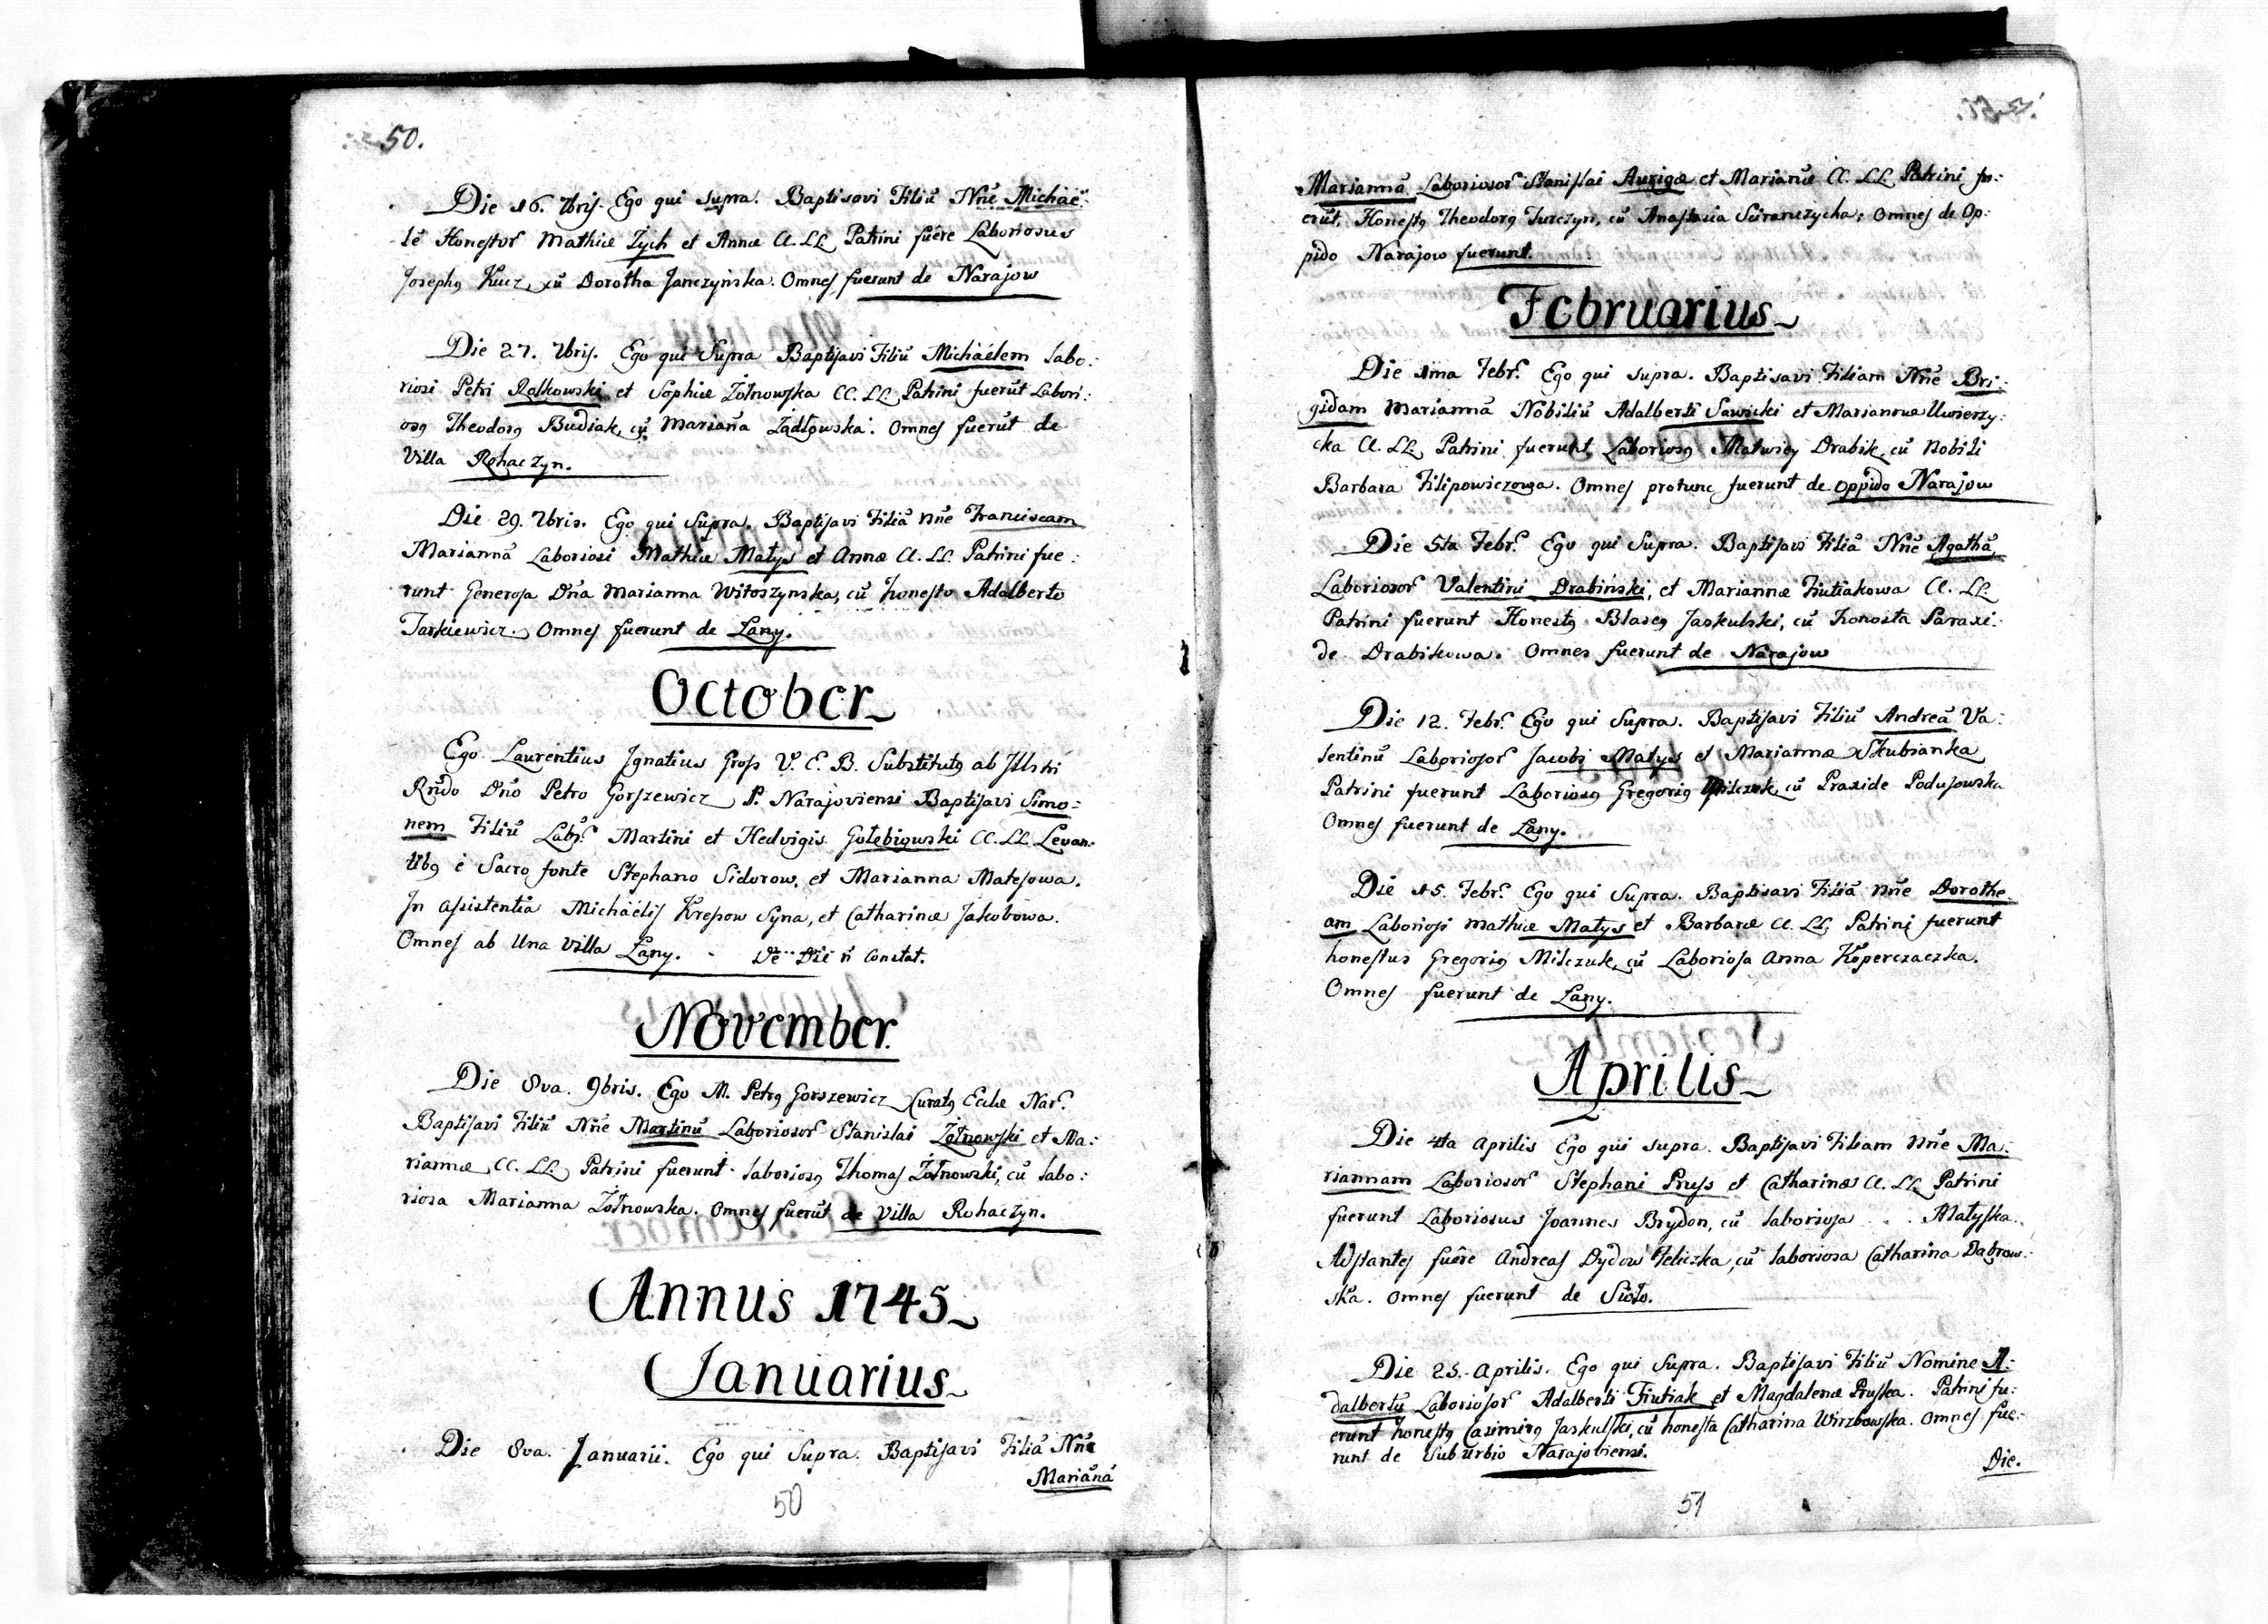 50.
Die 16. 7bris. Ego qui supra. Baptisavi Filiū Nñe Michaë-
lē Honestor̃ Mathiæ Zych et Annæ CC. LL. Patrini fuêre Laboriosus
Joseph9 Kucz, cū Dorotha Janczyńska. Omnes fuerunt de Narajow
Die 27. 7bris. Ego qui Supra Baptisavi Filiū Michäelem Labo:
riosi Petri Rolkowski et Sophiæ Żółnowska CC. LL. Patrini fuerūt Labori:
os9 Theodor9 Budiak, cū Mariaña Żądłowska. Omnes fuerūt de
Villa Rohaczyn.
Die 29. 7bris. Ego qui Supra. Baptisavi Filiā Nñe Franciscam
Mariannā Laboriosi Mathiæ Małys et Annæ CC. LL. Patrini fue:
runt Generosa Dña Marianna Witoszynska, cū honesto Adalberto
Tarkiewicz. Omnes fuerunt de Łany.
October
Ego Laurentius Ignatius Grops V. C. B. Substitut9 ab Illstri
Rñdo Dño Petro Gorszewicz P. Narajoviensi Baptisavi Simo:
nem Filiū Labr̃. Martini et Hedvigis Gołębiowski CC. LL. Levan:
tib9 è Sacro fonte Stephano Sidorow, et Marianna Matesowa.
In assistentia Michäelis Krepow Syna, et Catharinæ Jakobowa.
Omnes ab Una Villa Łany. - Dē Die ñ Constat.
November
Die 8va. 9bris. Ego M. Petr9 Gorszewicz Curat9 Eccliæ Nar̃.
Baptisavi Filiū Nñe Martinū Laboriosor̃ Stanislai Żółnowski et Ma:
riannæ CC. LL. Patrini fuerunt Laborios9 Thomas Żółnowski, cū labo:
riosa Marianna Żółnowska. Omnes fuerūt de Villa Rohaczyn.
Annus 1745
Januarius
Die 8va. Januarii. Ego qui Supra. Baptisavi Filiā Nñe
Mariañā
50
Mariannā Laboriosor̃ Stanislai Aurigæ et Mariañæ CC. LL. Patrini fu:
erūt, Honest9 Theodor9 Turczyn, cū Anastasia Sciranczycha; Omnes de Op:
pido Narajow fuerunt.
Februarius
Die 1ma Febr̃. Ego qui supra. Baptisavi Filiam Nñe Bri:
gidam Mariannā Nobiliū Adalberti Sawicki et Mariannæ Uwierzy:
cka CC. LL. Patrini fuerunt Laborios9 Matwiey Drabik, cū Nobili
Barbara Filipowiczowa. Omnes protunc fuerunt de oppido Narajow
Die 5ta Febr̃. Ego qui Supra. Baptisavi Filiā Nñe Agathā
Laboriosor̃ Valentini Drabiński, et Mariannæ Fiutiakowa CC. LL.
Patrini fuerunt Honest9 Blasey Jaskulski, cū honesta Paraxi:
de Drabikowa. Omnes fuerunt de Narajow
Die 12. Febr̃. Ego qui Supra. Baptisavi Filiū Andreā Va:
lentinū Laboriosor̃ Jacobi Małys et Mariannæ Skubianka
Patrini fuerunt Laborios9 Gregori9 Milczuk, cū Praxide Podusowska
Omnes fuerunt de Łany.
Die 15. Febr̃. Ego qui Supra. Baptisavi Filiā Nñe Dorothe:
am Laboriosi Mathiæ Małys et Barbaræ CC. LL. Patrini fuerunt
honestus Gregori9 Milczuk, cū Laboriosa Anna Koperczaczka.
Omnes fuerunt de Łany.
Aprilis
Die 4ta Aprilis Ego qui supra. Baptisavi Filiam Nñe Ma:
riannam Laboriosor̃ Stephani Pruss et Catharinæ CC. LL. Patrini
fuerunt Laboriosus Joannes Brydon, cū laboriosa . . . Małyska.
Adstantes fuêre Andreas Dydow Zeliczka, cū laboriosa Catharina Dąbrow:
ska. Omnes fuerunt de Sioło.
Die 25. Aprilis. Ego qui Supra. Baptisavi Filiū Nomine A:
dalbertū Laboriosor̃ Adalberti Fiutiak et Magdalenæ Pruska. Patrini fu:
erunt honest9 Casimir9 Jaskulski, cū honesta Catharina Wirzbowska. Omnes fue:
runt de Suburbio Narajoviensi.
Die.
51